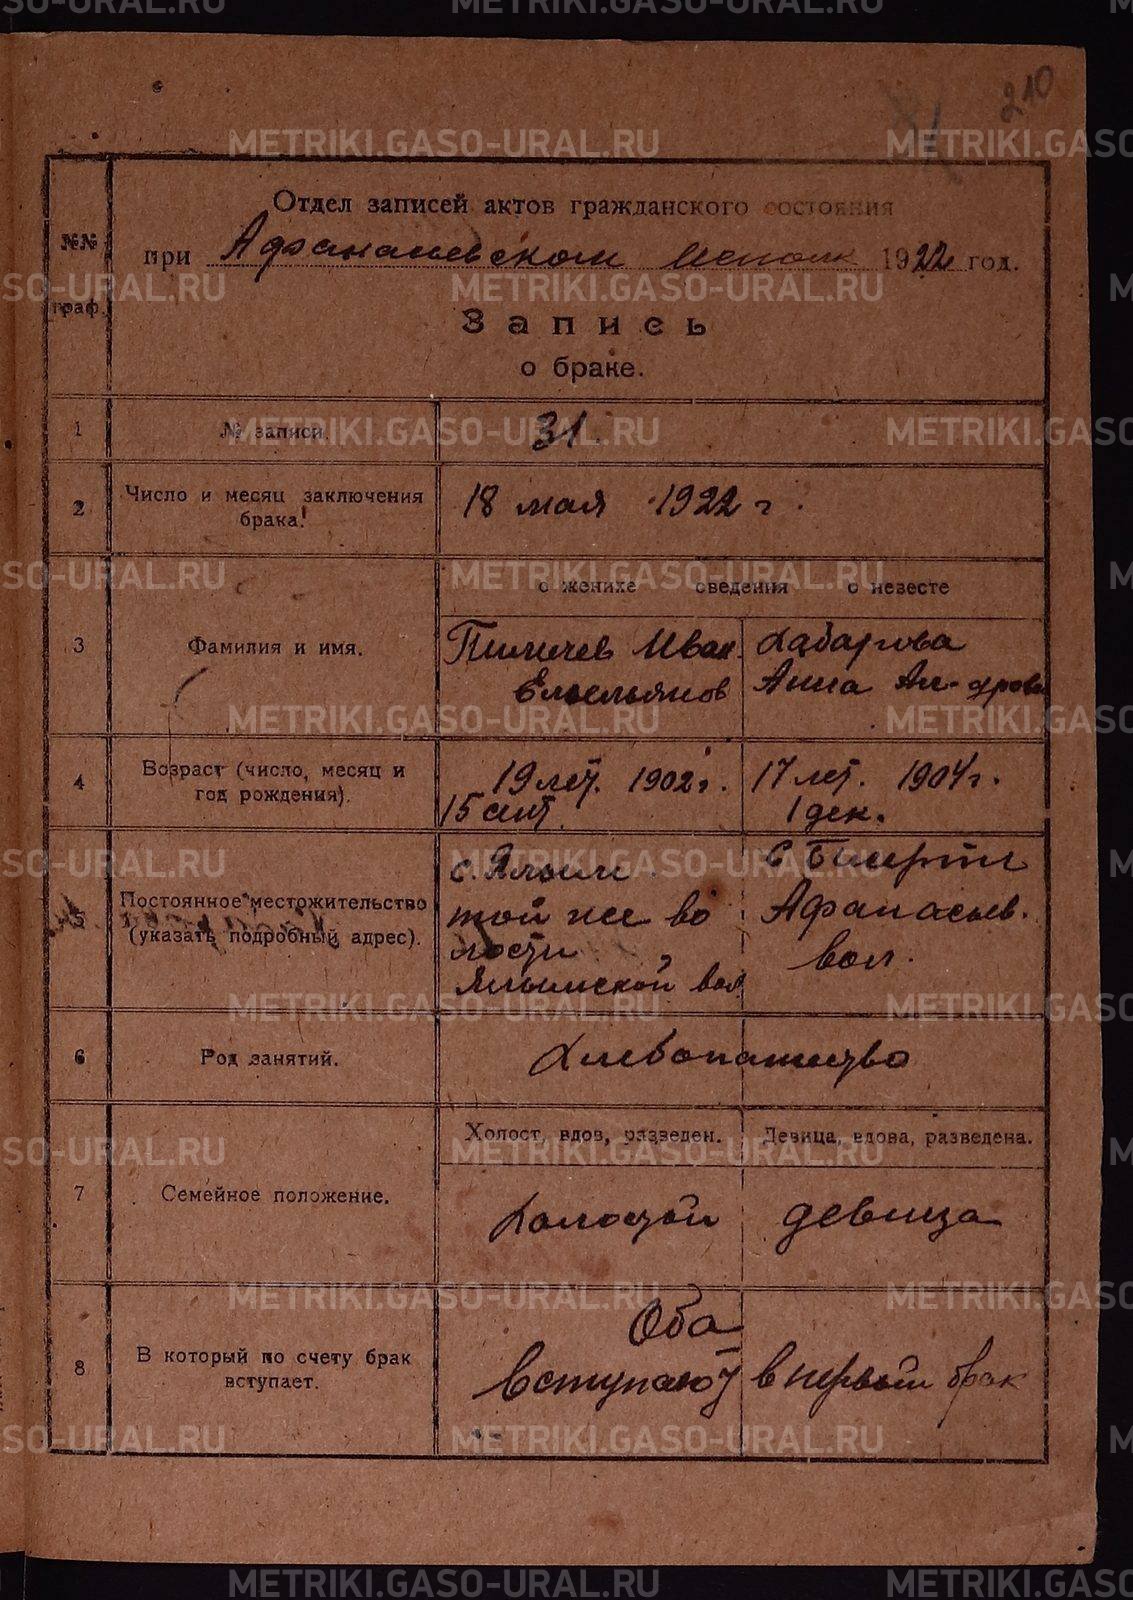 210
Отдел записей актов гражданского состояния
№№ граф.
при Афанасьевском Исполк 1922 год.
Запись
о браке.
1 № записи. 31
2 Число и месяц заключения брака. 18 мая 1922 г.
о женихе сведения о невесте
3 Фамилия и имя.
Иван Хабарова
Емельянов Анна Ал-дрова
4 Возраст (число, месяц и год рождения).
19 лет. 1902 г. 17 лет. 1904 г.
15 сент. 1 дек.
5 Постоянное местожительство (указать подробный адрес).
с. Ялым с
той же во Афанасьев.
лости вол.
Ялымской вол
6 Род занятий. Хлебопашество
Холост, вдов, разведен. Девица, вдова, разведена.
7 Семейное положение. Холостой девица
8 В который по счету брак вступает.
Оба
вступают в первый брак
METRIKI.GASO-URAL.RU